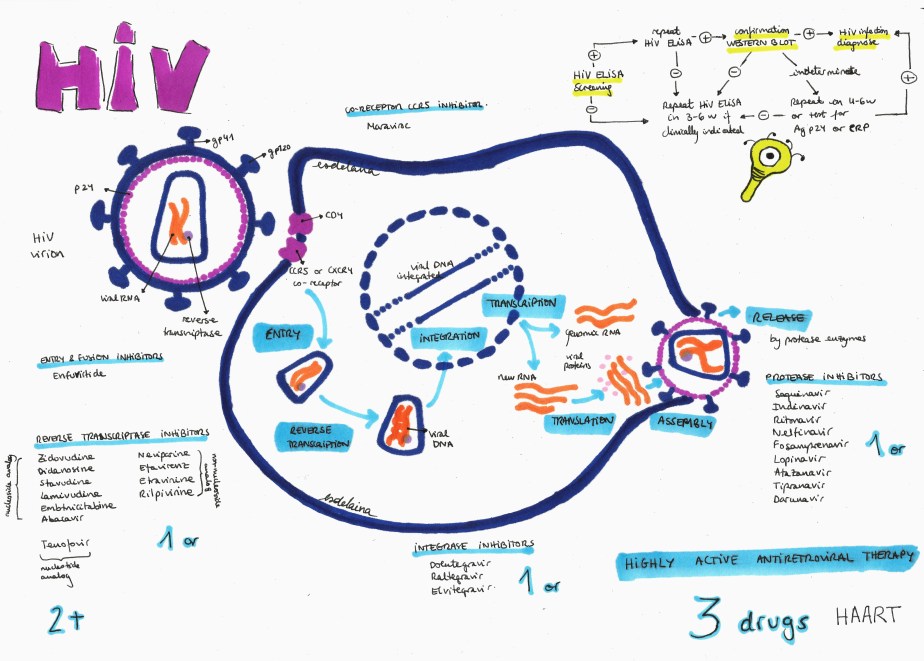 HiV
repeat
HiV ELiSA
confirmation
WESTERN BLOT
Hiv infection
diagnose
HiV ELISA
Screening
indeterminate
Repeat HiV ELISA
in 3-6 w if
clinically indicated
Repeat in 4-6w
or test for
Ag p24 or PRP
CO-RECEPTOR CCR5 INHIBITOR.
Maraviroc
gp41
gp120
p24
HiV
virion
viral RNA
reverse
transcriptase
esdelaina
CD4
CCR5 or CXCR4
co-receptor
viral DNA
integrated
ENTRY
INTEGRATION
TRANSCRIPTION
genomic RNA
viral
proteins
new RNA
TRANSLATION
ASSEMBLY
RELEASE
by protease enzymes
REVERSE
TRANSCRIPTION
viral
DNA
esdelaina
ENTRY & FUSION INHIBITORS
Enfuvirtide
REVERSE TRANSCRIPTASE INHIBITORS
nucleoside analog
Zidovudine
Didanosine
Stavudine
Lamivudine
Embtricitabine
Abacavir
Nevirapine
Efavirenz
Etravirine
Rilpivirine
non nucleoside
analog
Tenofovir
nucleotide
analog
1 or
2+
INTEGRASE INHIBITORS
Dolutegravir
Raltegravir
Elvitegravir
1 or
PROTEASE INHIBITORS
Saquinavir
Indinavir
Ritonavir
Nelfinavir
Fosamprenavir
Lopinavir
Atazanavir
Tipranavir
Darunavir
1 or
HIGHLY ACTIVE ANTIRETROVIRAL THERAPY
3 drugs HAART